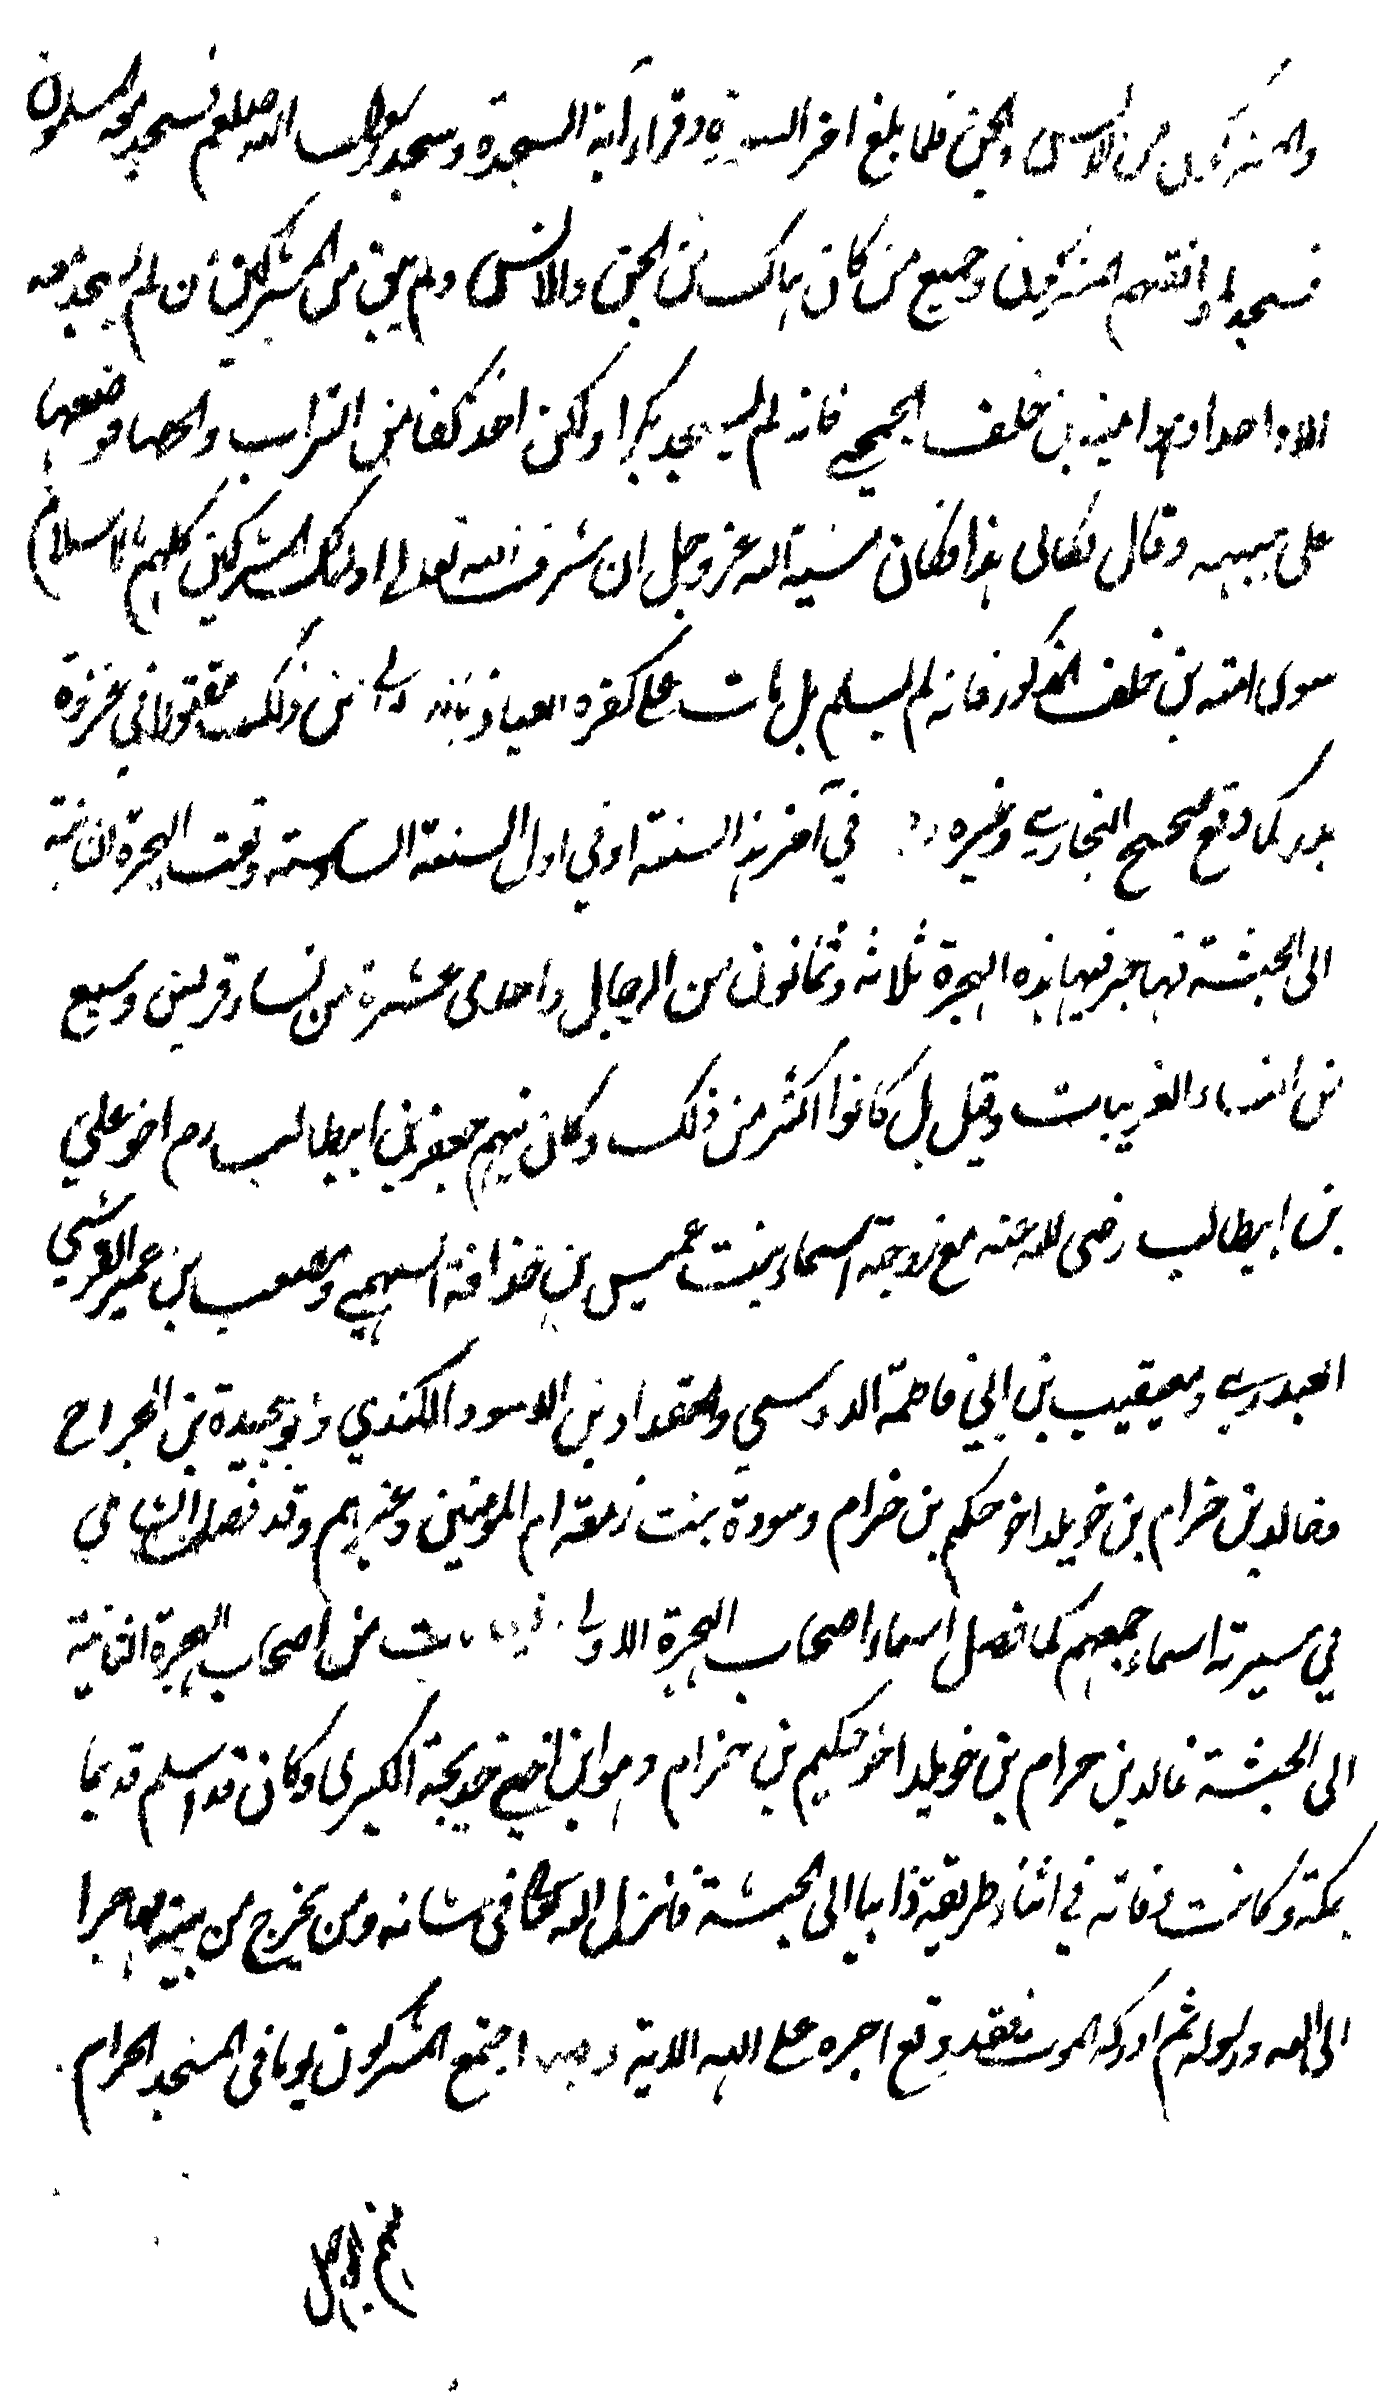 والمشركون من الانس والجن فلما بلغ اخر السورة وقرا آية السجدة وسجد رسول الله صلعم فسجد معه المسلمون
فسجد لموافقتهم المشركون وجميع من كان هناك من الجن والانس ولم يبق من المشركين من لم يسجد معه
الا واحدا وهو امية بن خلف الجمحي فانه لم يسجد تكبرا ولكن اخذ كفا من التراب والحصا فوضعها
على جبهته وقال يكفاني هذا فكان مشية الله عز وجل ان شرف الله تعالى اولئك المشركين كلهم بالاسلام
سوى امية بن خلف المذكور فانه لم يسلم بل مات على كفره العياذ بالله من ذلك مقتولا في غزوة
بدر كما وقع صحيح البخاري وغيره في آخر هذا السنة او في اول السنة السادسة وقعت الهجرة الثانية
الى الحبشة فهاجر فيها هذه الهجرة ثلاثة وثمانون من الرجال واحدى عشرة من نساء قريش وسبع
من النساء الغريبات وقيل بل كانوا اكثر من ذلك وكان فيهم جعفر بن ابيطالب رم اخو علي
بن ابيطالب رضى الله عنه مع زوجته اسماء بنت عميس بن حذافة السهمي ومصعب بن عمير القرشي
العبدري ومعيقيب بن ابي فاطمة الدوسي والمقداد بن الاسود الكندي وابو عبيدة بن الجراح
وخالد بن حزام بن خويلد اخو حكيم بن حزام وسودة بنت زمعة ام المؤمنين وغيرهم وقد فصل الشامي
في سيرته اسماء جميعهم كما فصل اسماء اصحاب الهجرة الاولى من اصحاب الهجرة الثانية
الى الحبشة خالد بن حزام بن خويلد اخو حكيم بن حزام وهو ابن اخي خديجة الكبرى وكان قد اسلم قديما
بمكة وكانت وفاته في اثناء طريقه ذاهبا الى الحبشة فانزل الله تعالى في شانه ومن يخرج من بيته مهاجرا
الى الله ورسوله ثم ادركه الموت فقد وقع اجره على الله الاية اجتمع المشركون يوما في المسجد الحرام